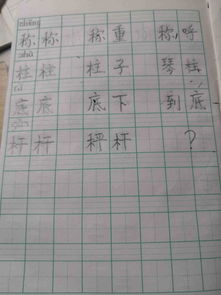 chēng
称 称 称 重 称 呼
zhù
柱 柱 柱 子 琴 柱
dǐ
底 底 底 下 到 底
杆 杆 秤 杆 ?